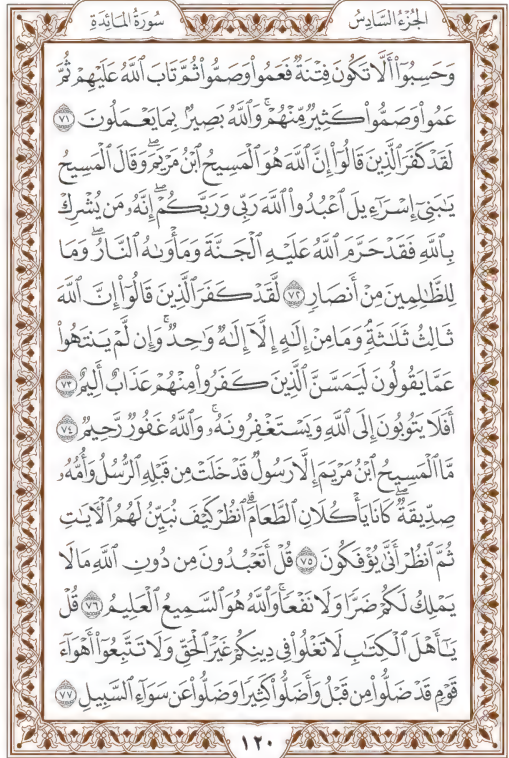 الجزء السادس
سورة المائدة
وَحَسِبُوٓا۟ أَلَّا تَكُونَ فِتْنَةٌ فَعَمُوا۟ وَصَمُّوا۟ ثُمَّ تَابَ ٱللَّهُ عَلَيْهِمْ ثُمَّ
عَمُوا۟ وَصَمُّوا۟ كَثِيرٌ مِّنْهُمْ ۚ وَٱللَّهُ بَصِيرٌۢ بِمَا يَعْمَلُونَ ٧١
لَقَدْ كَفَرَ ٱلَّذِينَ قَالُوٓا۟ إِنَّ ٱللَّهَ هُوَ ٱلْمَسِيحُ ٱبْنُ مَرْيَمَ ۖ وَقَالَ ٱلْمَسِيحُ
يَٰبَنِىٓ إِسْرَٰٓءِيلَ ٱعْبُدُوا۟ ٱللَّهَ رَبِّى وَرَبَّكُمْ ۖ إِنَّهُۥ مَن يُشْرِكْ
بِٱللَّهِ فَقَدْ حَرَّمَ ٱللَّهُ عَلَيْهِ ٱلْجَنَّةَ وَمَأْوَىٰهُ ٱلنَّارُ ۖ وَمَا
لِلظَّٰلِمِينَ مِنْ أَنصَارٍ ٧٢ لَّقَدْ كَفَرَ ٱلَّذِينَ قَالُوٓا۟ إِنَّ ٱللَّهَ
ثَالِثُ ثَلَٰثَةٍ ۘ وَمَا مِنْ إِلَٰهٍ إِلَّآ إِلَٰهٌ وَٰحِدٌ ۚ وَإِن لَّمْ يَنتَهُوا۟
عَمَّا يَقُولُونَ لَيَمَسَّنَّ ٱلَّذِينَ كَفَرُوا۟ مِنْهُمْ عَذَابٌ أَلِيمٌ ٧٣
أَفَلَا يَتُوبُونَ إِلَى ٱللَّهِ وَيَسْتَغْفِرُونَهُۥ ۚ وَٱللَّهُ غَفُورٌ رَّحِيمٌ ٧٤
مَّا ٱلْمَسِيحُ ٱبْنُ مَرْيَمَ إِلَّا رَسُولٌ قَدْ خَلَتْ مِن قَبْلِهِ ٱلرُّسُلُ وَأُمُّهُۥ
صِدِّيقَةٌ ۖ كَانَا يَأْكُلَانِ ٱلطَّعَامَ ۗ ٱنظُرْ كَيْفَ نُبَيِّنُ لَهُمُ ٱلْءَايَٰتِ
ثُمَّ ٱنظُرْ أَنَّىٰ يُؤْفَكُونَ ٧٥ قُلْ أَتَعْبُدُونَ مِن دُونِ ٱللَّهِ مَا لَا
يَمْلِكُ لَكُمْ ضَرًّا وَلَا نَفْعًا ۚ وَٱللَّهُ هُوَ ٱلسَّمِيعُ ٱلْعَلِيمُ ٧٦ قُلْ
يَٰٓأَهْلَ ٱلْكِتَٰبِ لَا تَغْلُوا۟ فِى دِينِكُمْ غَيْرَ ٱلْحَقِّ وَلَا تَتَّبِعُوٓا۟ أَهْوَآءَ
قَوْمٍ قَدْ ضَلُّوا۟ مِن قَبْلُ وَأَضَلُّوا۟ كَثِيرًا وَضَلُّوا۟ عَن سَوَآءِ ٱلسَّبِيلِ ٧٧
١٢٠